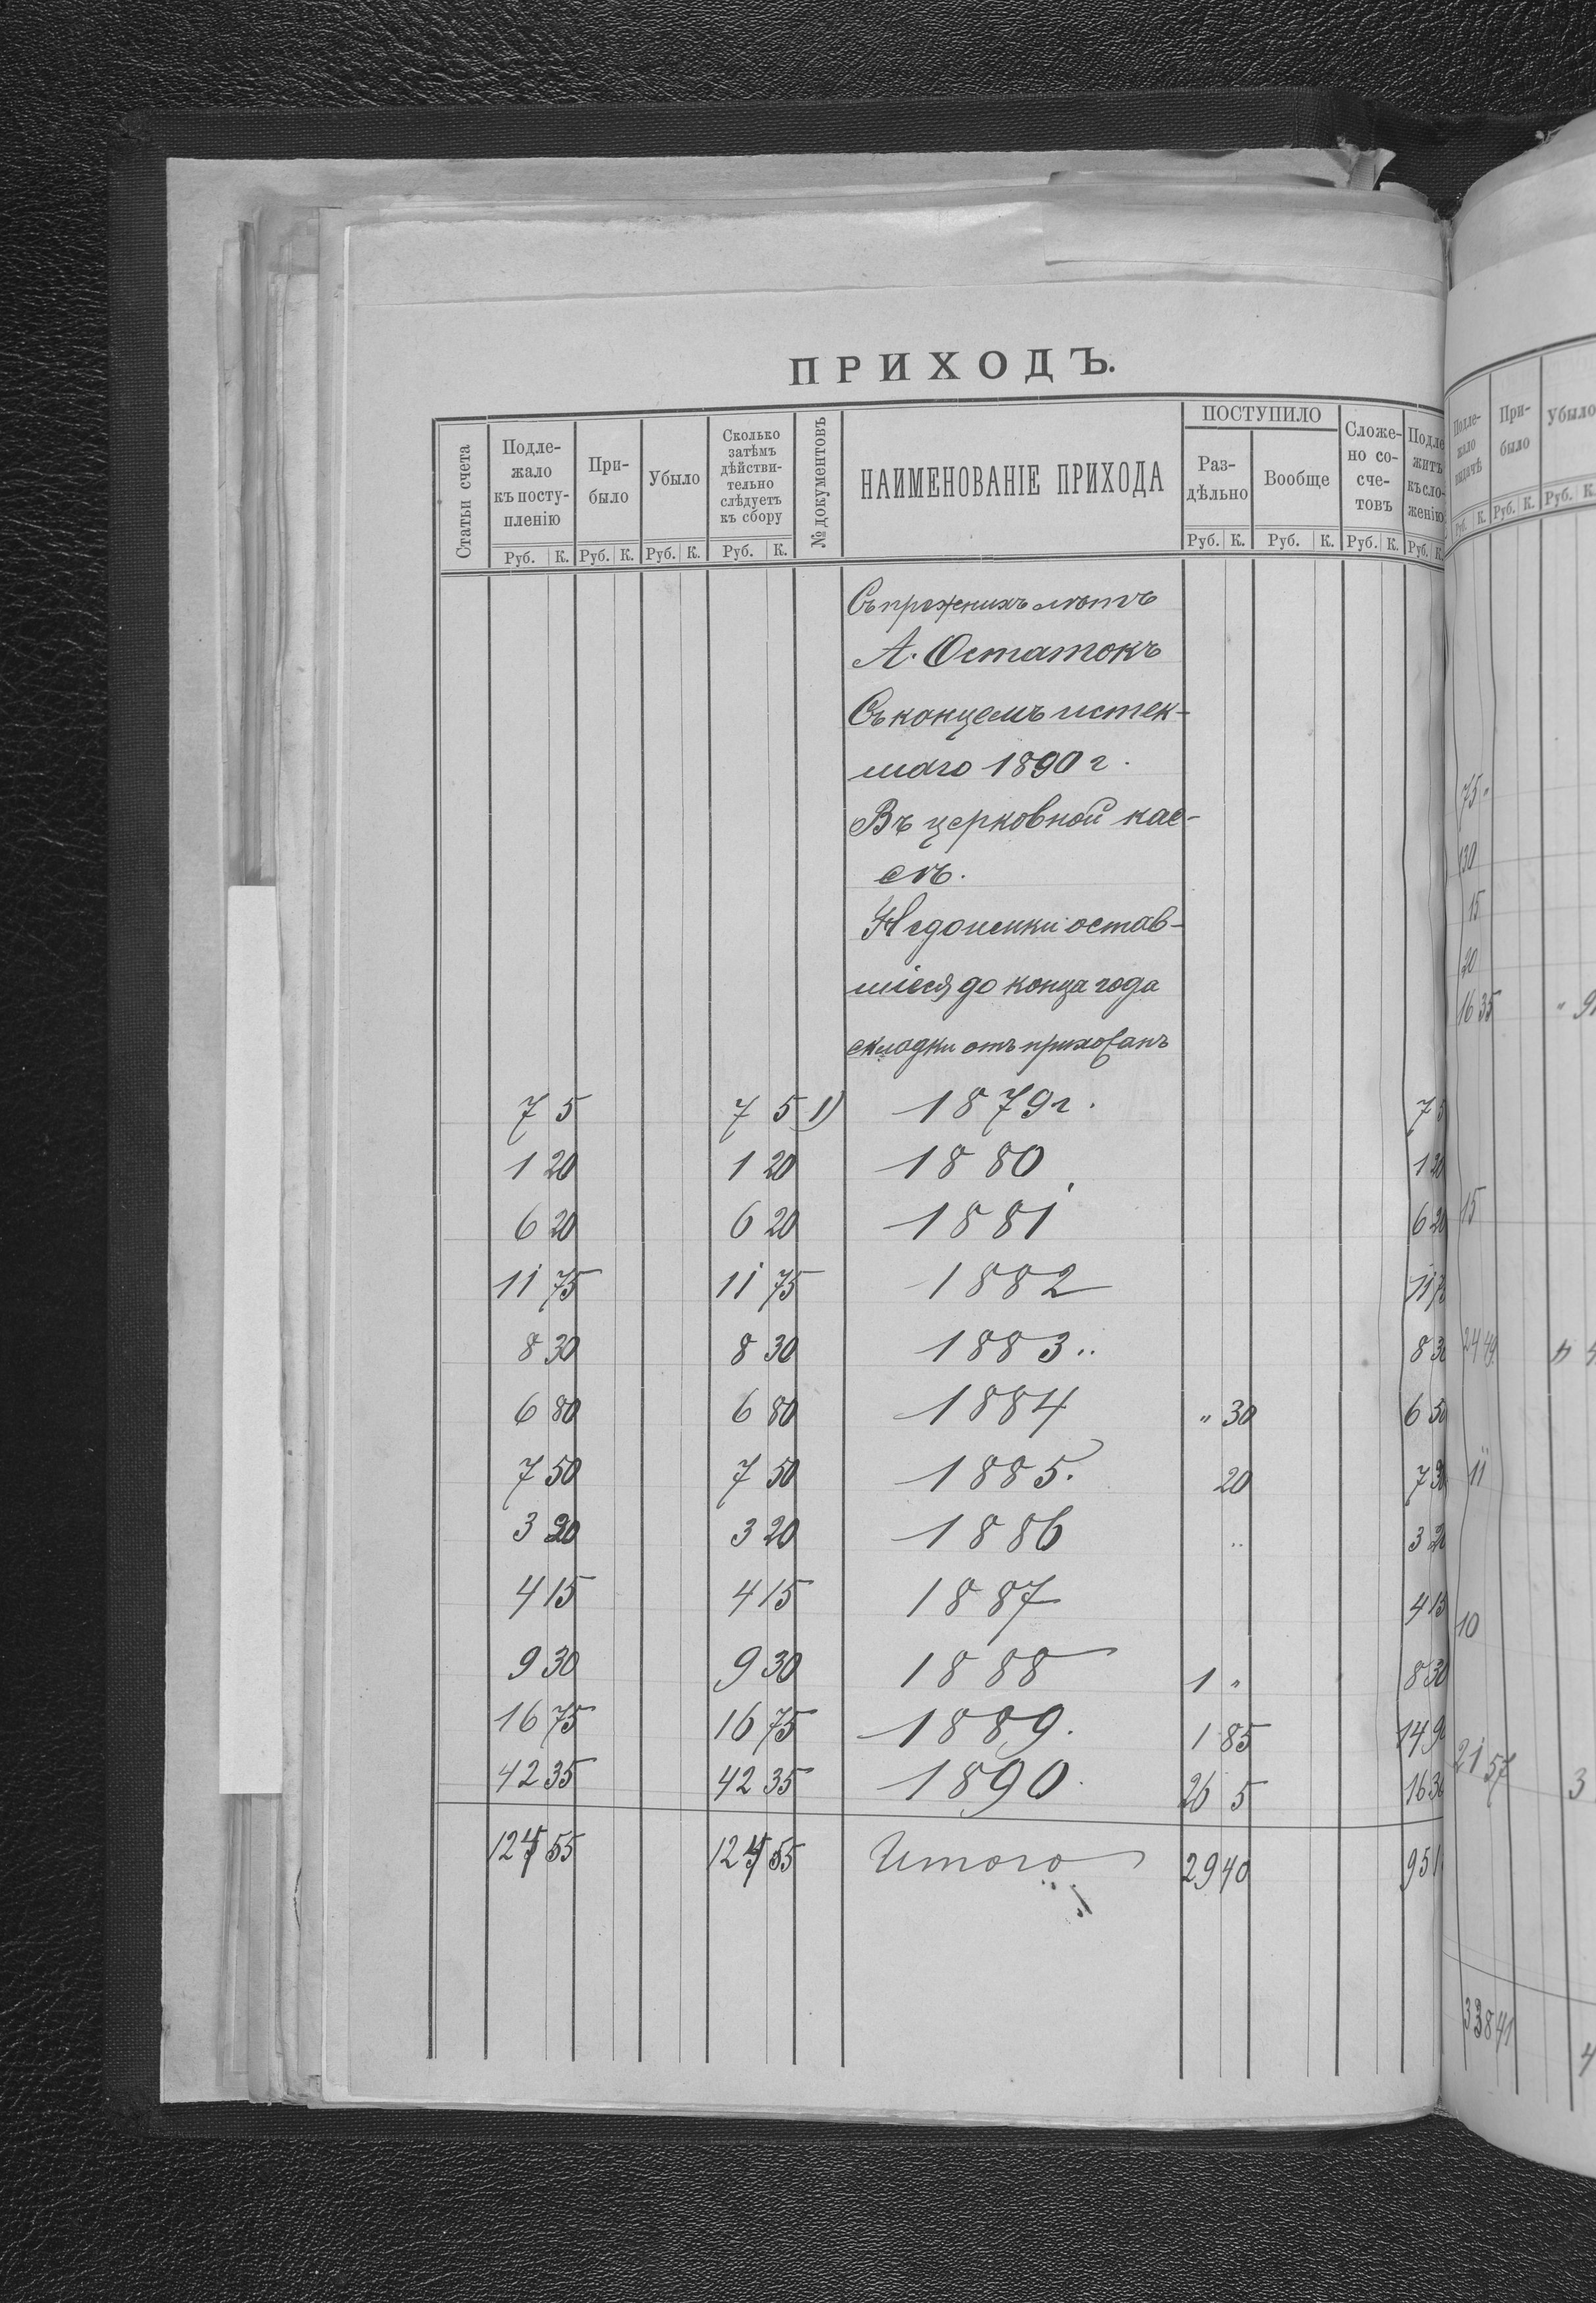 ПРИХОДЪ.
Статьи счета | Подлежало къ поступленію | Прибыло | Убыло | Сколько затѣмъ дѣйствительно слѣдуетъ къ сбору | № документовъ | НАИМЕНОВАНІЕ ПРИХОДА | ПОСТУПИЛО Раздѣльно | Вообще | Сложено со счетовъ | Подлежитъ къ сложенію
Руб. К. Руб. К. Руб. К. Руб. К. Руб. К. Руб. К. Руб. К. Руб. К.
Съ прежнихъ лѣтъ
А. Остатокъ
Съ концемъ истек-
шаго 1890 г.
Въ церковной кас-
сѣ.
Недоимки остав-
шіеся до конца года
складки отъ прихожанъ
7 5 7 5 1) 1879 г. 7 5
1 20 1 20 1880 1 20
6 20 6 20 1881 6 20
11 75 11 75 1882 11 75
8 30 8 30 1883 .. 8 30
6 80 6 80 1884 " 30 6 50
7 50 7 50 1885. 20 7 30
3 20 3 20 1886 .. 3 20
4 15 4 15 1887 4 15
9 30 9 30 1888 1 " 8 30
16 75 16 75 1889. 1 85 14 90
42 35 42 35 1890. 26 5 16 30
124 55 124 55 Итого 29 40 95 1
Подлежало выдачѣ | Прибыло | Убыло
Руб. К. Руб. К. Руб. К.
75 "
30
15
20
16 35
15
24 49
11
10
21 57 3
338 41 4